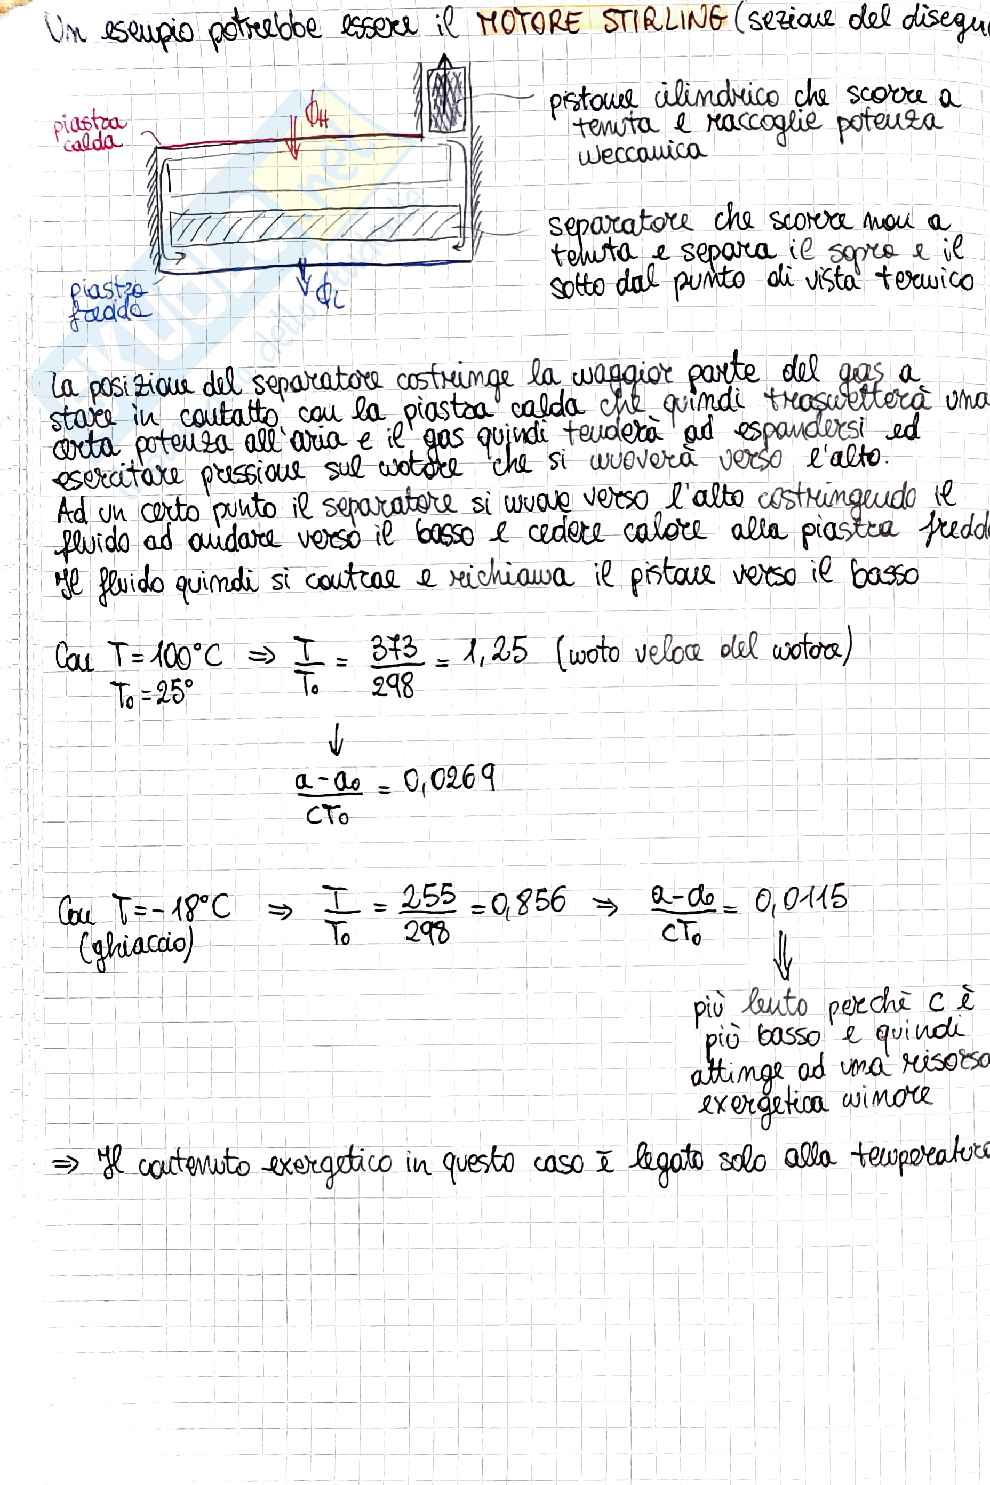 Un esempio potrebbe essere il MOTORE STIRLING (sezione del disegn
piastra
calda
ΦH
pistone cilindrico che scorre a
tenuta e raccoglie potenza
meccanica
separatore che scorre non a
tenuta e separa il sopra e il
sotto dal punto di vista termico
piastra
fredda
ΦL
La posizione del separatore costringe la maggior parte del gas a
stare in contatto con la piastra calda che quindi trasmetterà una
certa potenza all'aria e il gas quindi tenderà ad espandersi ed
esercitare pressione sul motore che si muoverà verso l'alto.
Ad un certo punto il separatore si muove verso l'alto costringendo il
fluido ad andare verso il basso e cedere calore alla piastra fredd
Il fluido quindi si contrae e richiama il pistone verso il basso
Con T=100°C ⇒ T/T₀ = 373/298 = 1,25 (moto veloce del motore)
T₀=25°
↓
a-a₀/cT₀ = 0,0269
Con T=-18°C ⇒ T/T₀ = 255/298 = 0,856 ⇒ a-a₀/cT₀ = 0,0115
(ghiaccio)
⇓
più lento perchè c è
più basso e quindi
attinge ad una risorsa
exergetica minore
⇒ Il contenuto exergetico in questo caso è legato solo alla temperatura